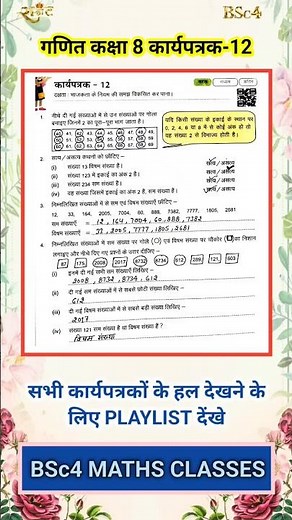 BSc4
गणित कक्षा 8 कार्यपत्रक-12
कार्यपत्रक - 12
दक्षता : भाजकता के नियम की समझ विकसित कर पाना।
1. नीचे दी गई संख्याओं में से उन संख्याओं पर गोला
बनाइए जिनमें 2 का पूरा-पूरा भाग जाता है।
यदि किसी संख्या के इकाई के स्थान पर
0, 2, 4, 6 या 8 में से कोई अंक हो तो
वह संख्या 2 से विभाज्य होती है।
2. सत्य/असत्य कथनों को छाँटिए -
(i) संख्या 13 विषम संख्या है। सत्य / असत्य
(ii) संख्या 123 में इकाई का अंक 2 है। सत्य / असत्य
(iii) संख्या 234 सम संख्या है। सत्य / असत्य
(iv) वह संख्या जिसमें इकाई का अंक 2 है, सम संख्या है। सत्य / असत्य
3. निम्नलिखित संख्याओं में से सम एवं विषम संख्याएँ छाँटिए -
12, 33, 164, 2005, 7004, 60, 888, 7382, 7777, 1805, 2681
सम संख्याएँ = 12, 164, 7004, 60, 888, 7382
विषम संख्याएँ = 33, 2005, 7777, 1805, 2681
4. निम्नलिखित संख्याओं में सम संख्या पर गोले ◯ एवं विषम संख्या पर चौकोर ☐ का निशान
लगाइए और नीचे दिए गए प्रश्नों के उत्तर दीजिए -
87 175 2008 2017 8732 8734 612 259 121 603
(i) इनमें दी गई सभी सम संख्याएँ लिखिए -
2008, 8732, 8734, 612
(ii) दी गई सम संख्याओं में से सबसे छोटी संख्या लिखिए -
612
(iii) दी गई विषम संख्याओं में से सबसे बड़ी संख्या लिखिए -
2017
(iv) संख्या 121 सम संख्या है या विषम संख्या है ?
विषम संख्या
सभी कार्यपत्रकों के हल देखने के
लिए PLAYLIST देंखे
BSc4 MATHS CLASSES